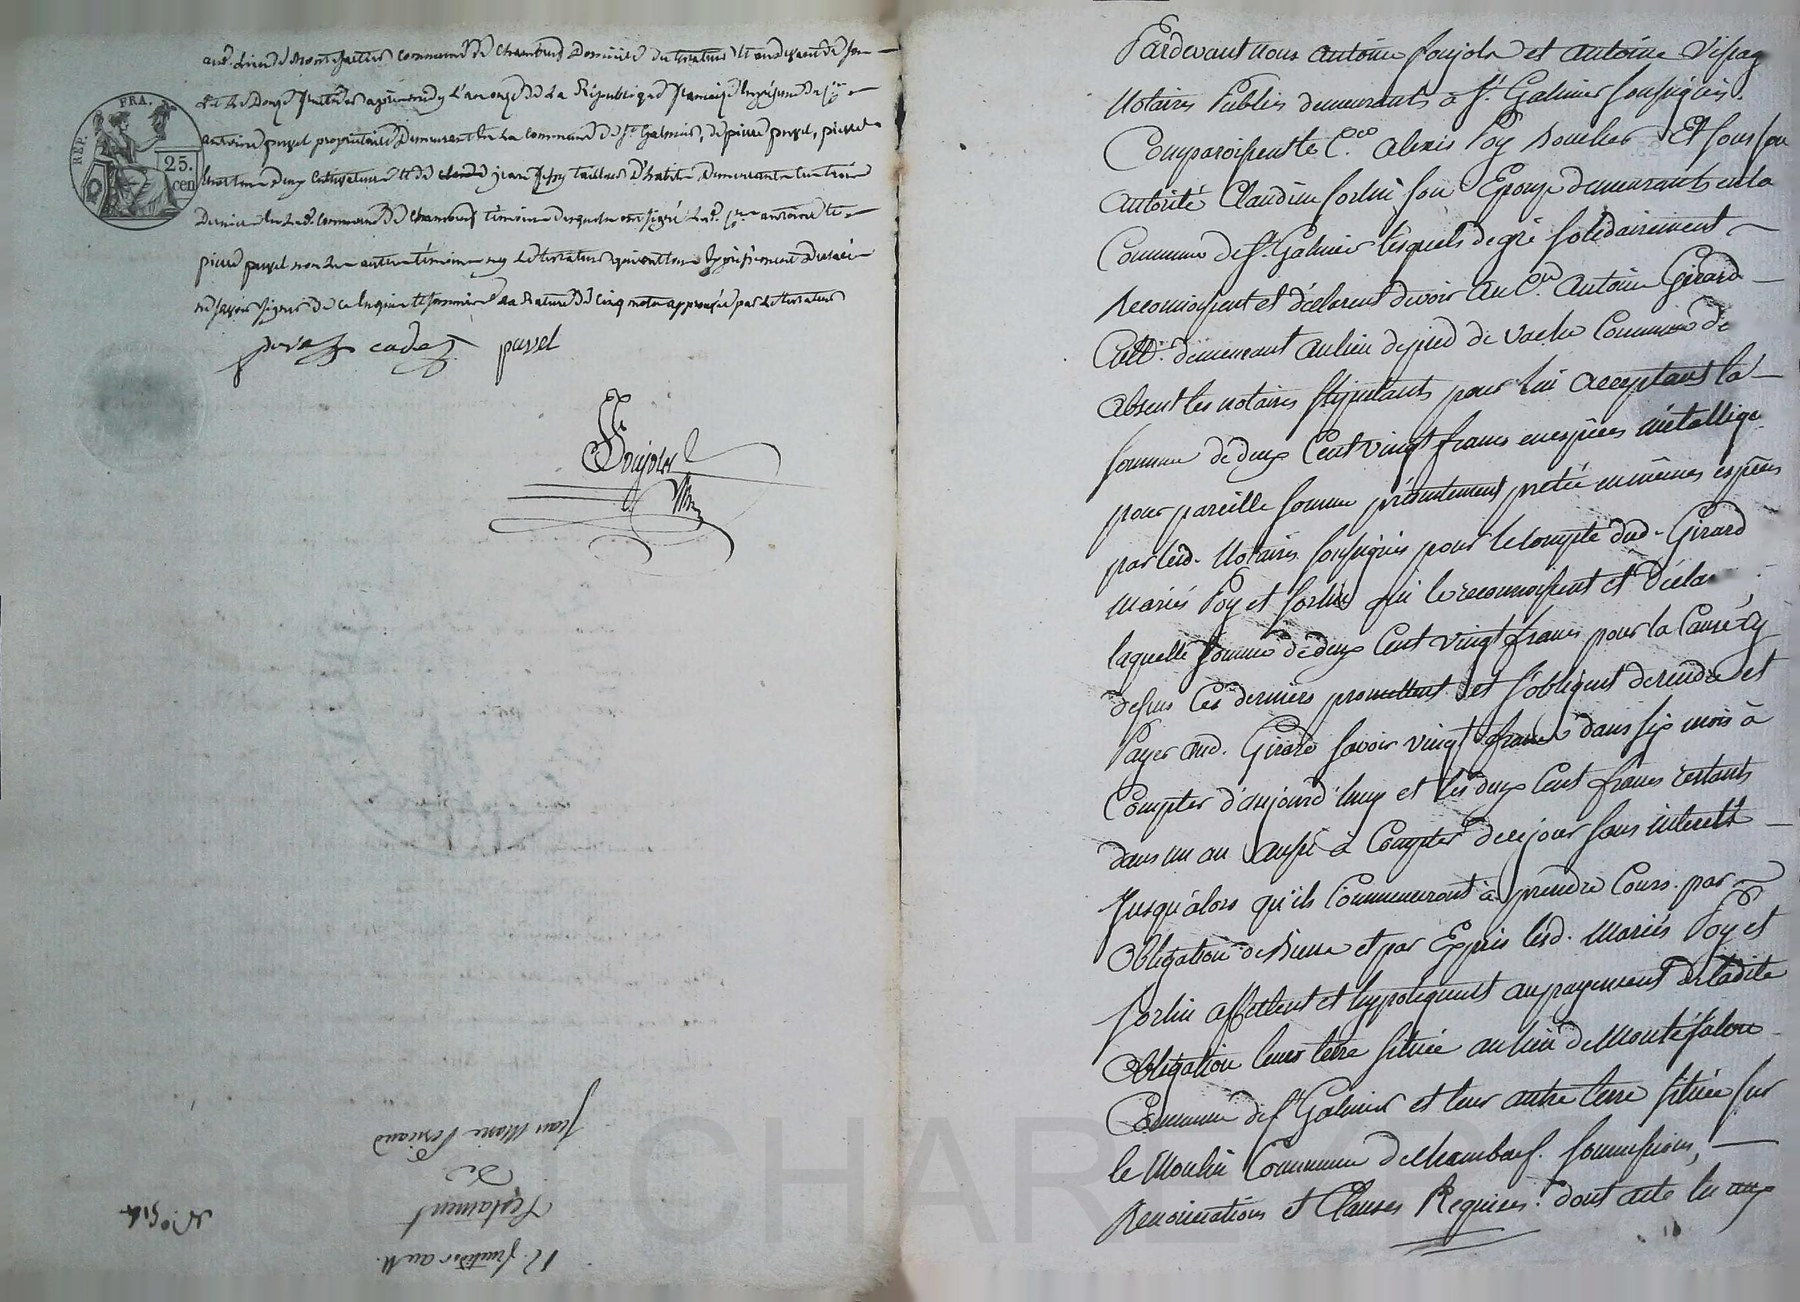 aud. lieu de commune de Chambeuf Domicile du testateur et au devant de
le Douze fructidor après midy l'an onze de la République française En présence de
antoine puvel propriétaire Demeurant en la commune de St Galmier, de pierre puvel, pierre
cultivateurs et de jean tailleur D'habits, Demeurants
Dernier commune de Chambeuf témoins desquels ont signé antoine et
pierre puvel non les autres témoins ny le testateur qui ont Expressément Déclaré
ne savoir signer de ce Enquis et sommés la rature de cinq mots approuvée par le testateur
REP. FRA.
25.
cen
cadet puvel
Poujola
Nre
Pardevant nous Antoine Poujola et Antoine
Notaires Publics demeurants à St. Galmier soussignés.
Comparoissent le C.en Alexis Poy Et sous son
Autorité Claudine Sorlin son Epouse demeurants en la
Commune de St. Galmier lesquels de gré solidairement
Reconnoissent et déclarent devoir Au C.en Antoine Girard
Cult.r demeurant au lieu de pied de vache Commune de
Absent les notaires stipulants pour lui acceptant la
somme de deux Cent vingt francs en espèces métallique
pour pareille somme présentement pretée en mêmes espèces
par lesd. Notaires soussignés pour le compte dud. Girard
Mariés Poy et Sorlin qui le reconnoissent et
laquelle somme de deux Cent vingt francs pour la Cause cy
dessus Ces derniers promettent et s'obligent de rendre et
Payer aud. Girard savoir vingt francs dans six mois à
Compter d'aujourd'huy et les deux Cent francs restants
dans un an aussi à Compter de ce jour sans interets
Jusqu'alors qu'ils Commenceront à prendre Cours. par
Obligation de Biens et par Exprès lesd. Mariés Poy et
Sorlin affectent et hypotequent au payement de ladite
Obligation leur terre située au lieu de
Commune de St Galmier et leur autre terre située sur
le Moulin Commune de Chambeuf. Soumissions,
Renonciations et Clauses Requises. dont acte lu aux
12. fructidor an 11.
Testament
De
Jean Marie